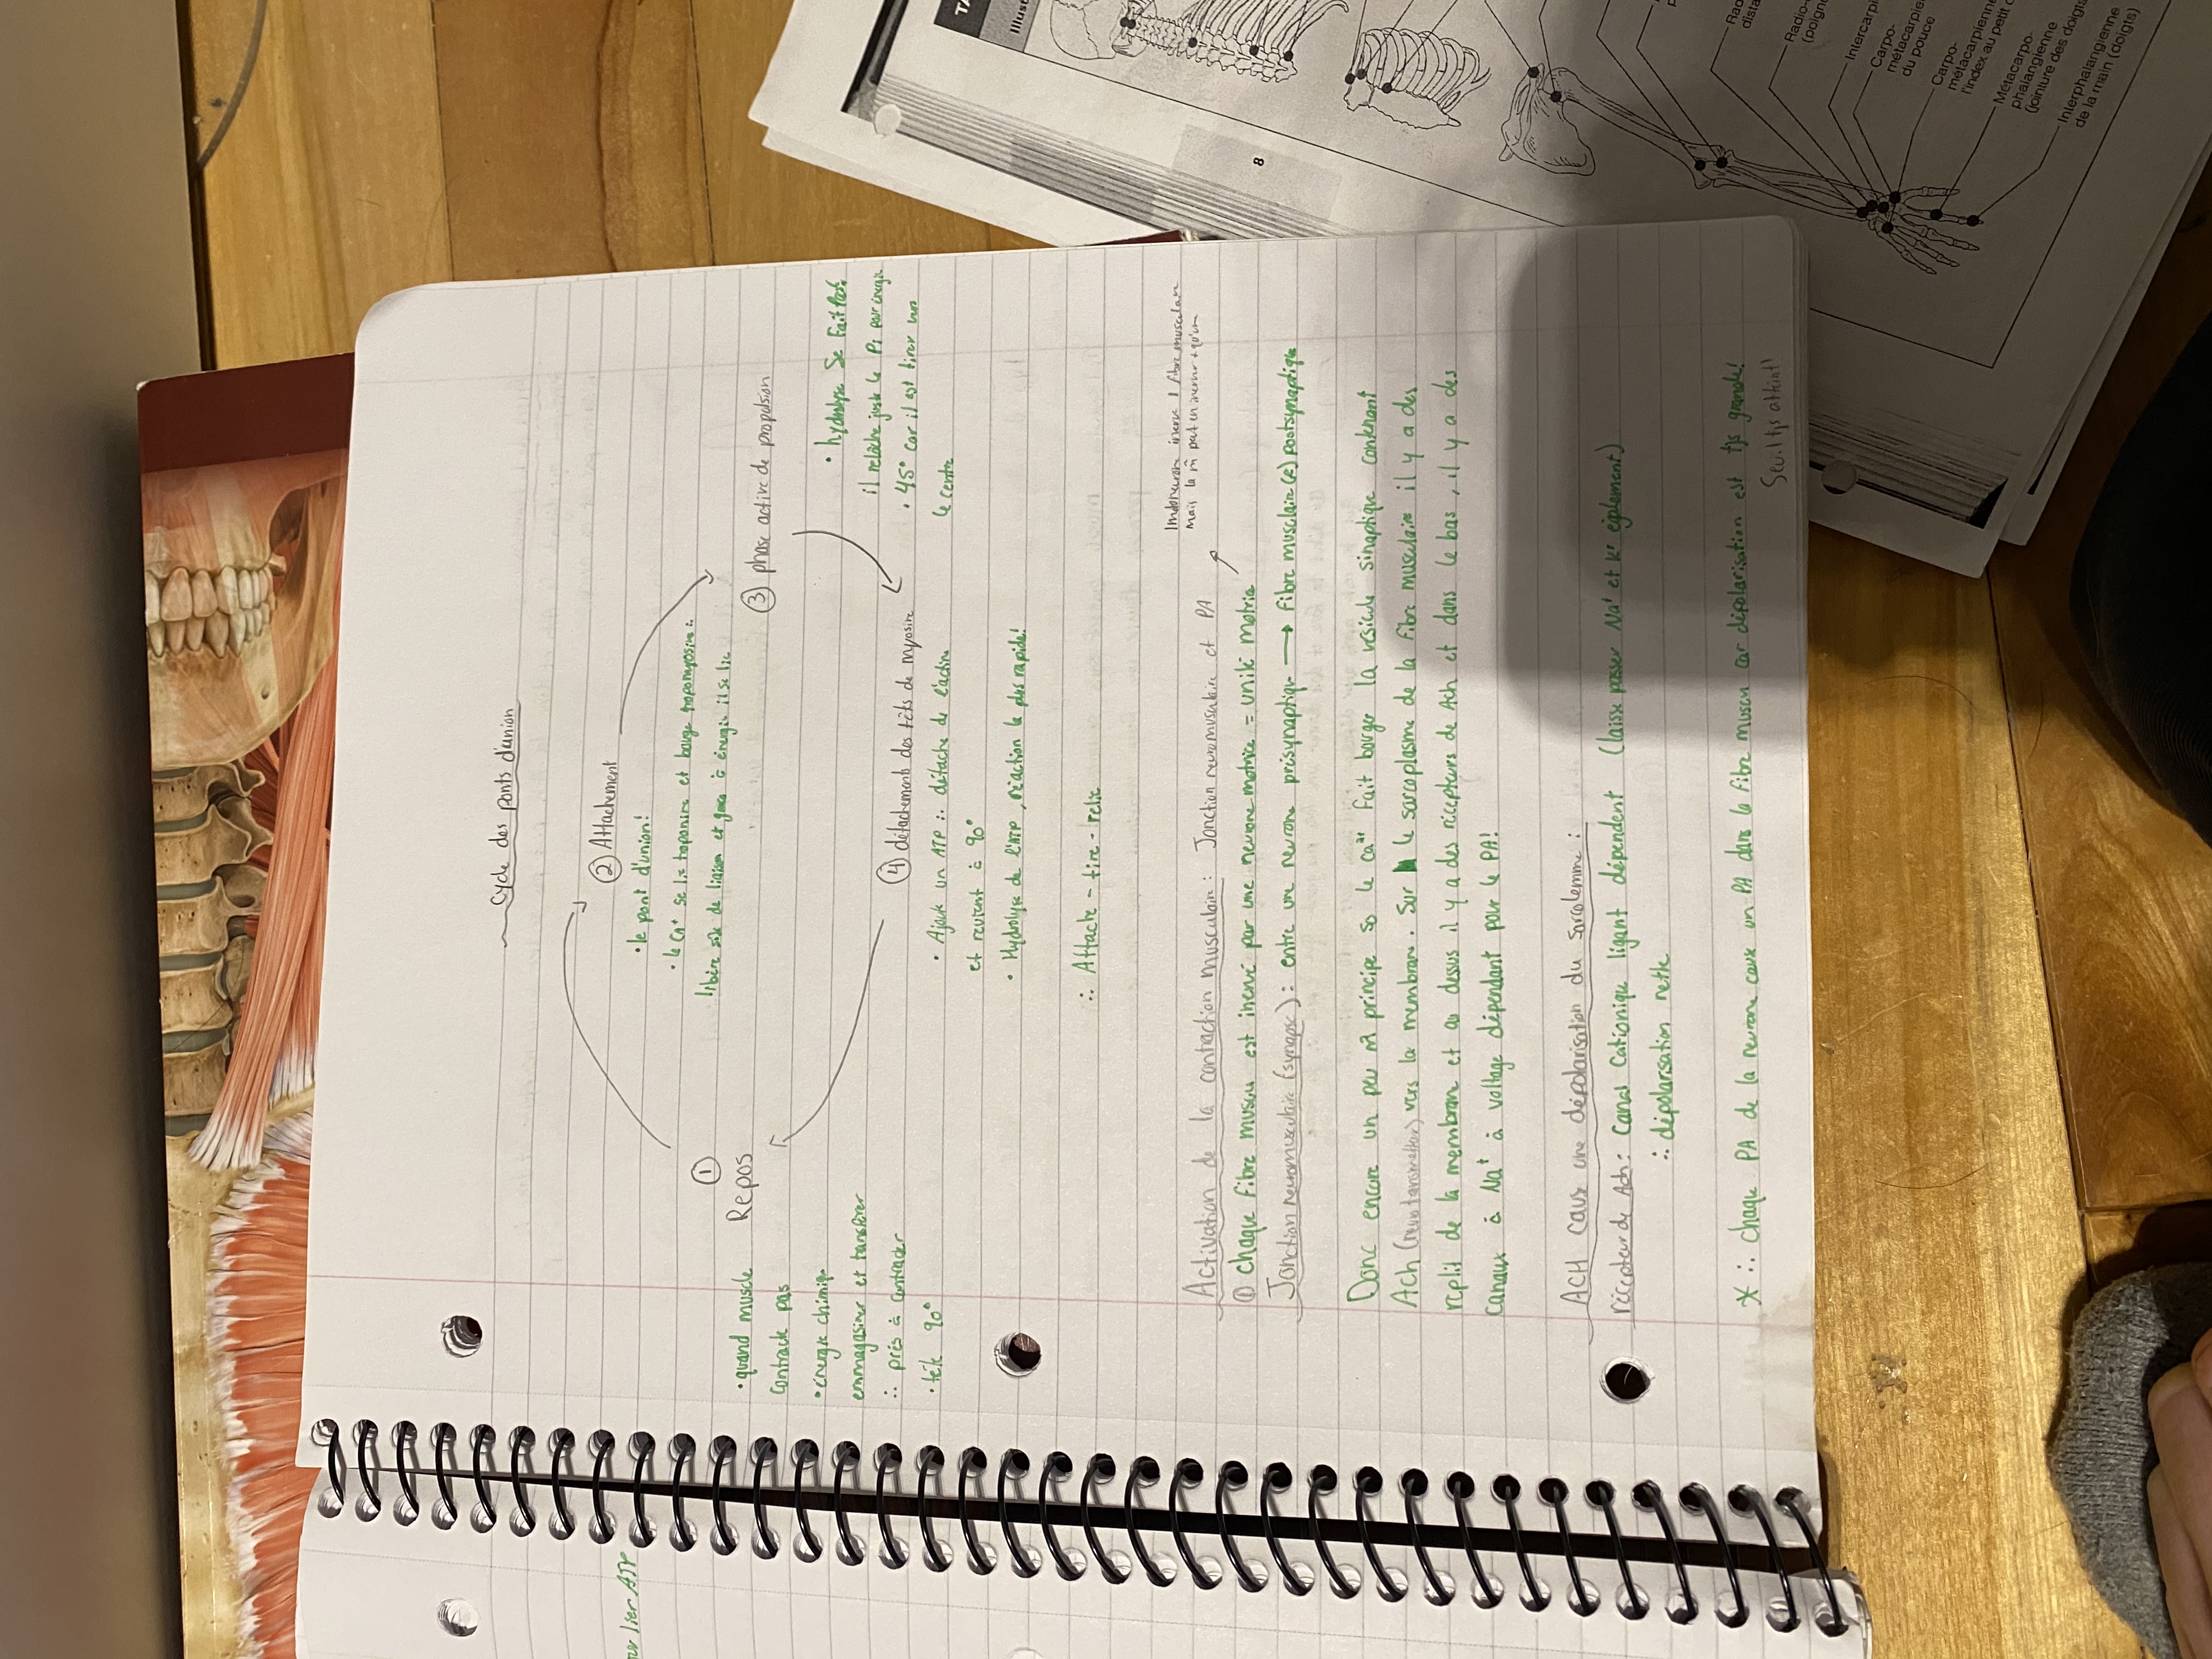 Cycle des ponts d'union
② Attachement
• le pont d'union!
• le Ca⁺ se lie troponine et bouge tropomyosine ∴
libère site de liaison et grace à énergie il se lie
③ phase active de propulsion
• hydrolyse se fait
il relâche juste le Pi pour énergie
• 45° car il est tirer vers
le centre
①
Repos
• quand muscle
contracte pas
• énergie chimique
emmagasiner et transférer
∴ près à contracter
• tête 90°
④ détachements des têts de myosine
• Ajoute un ATP ∴ détache de l'actine
et revient à 90°
• Hydrolyse de l'ATP, réaction la plus rapide!
∴ Attache - tire - relie
1 motoneurone inerve 1 fibre musculaire
mais la m̂ peut en inerver + qu'un
Activation de la contraction musculaire : Jonction neuromusculaire et PA
① chaque fibre muscu est inervé par une neurone motrice = unité motrice
Jonction neuromusculaire (synapse) : entre un neurone présynaptique → fibre musclaire(s) postsynaptique
Donc encore un peu m̂ principe so le Ca²⁺ fait bouger la vésicule sinaptique contenant
Ach (neurotansmetteur) vers la membrane. Sur le sarcoplasme de la fibre musculaire il y a des
replit de la membran et au dessus il y a des récepteurs de Ach et dans le bas, il y a des
canaux à Na⁺ à voltage dépendant pour le PA!
ACH cause une dépolarisation du sarcolemme :
récepteur de Ach : Canal Cationique ligant dépendent (laisse passer Na⁺ et K⁺ églement)
∴ dépolarisation nette
* ∴ chaque PA de la neurone cause un PA dans la fibre muscu car dépolarisation est tjs grande!
Seuil tjs atteint!
lier ATP
8
Illust
TA
Intercarpi
Radio-
(poign
Rad
dista
Carpo-
métacarpie
du pouce
Carpo-
métacarpienn
l'index au petit
Métacarpo-
phalangienne
(jointure des doigts
Interphalangienne
de la main (doigts)